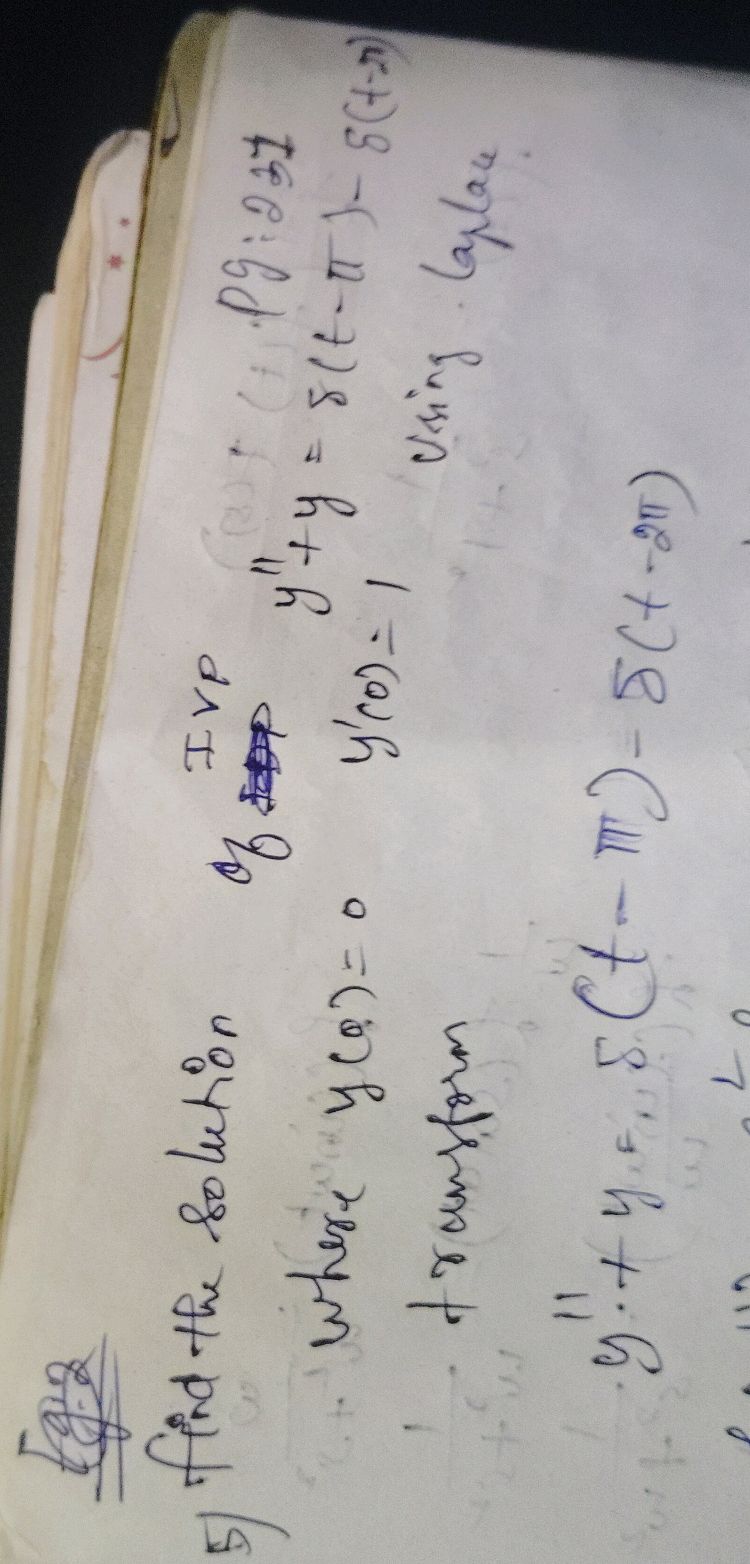 Eg:2
5) find the solution of IVP Pg: 231
y'' + y = δ(t - π) - δ(t-2π)
where y(0) = 0 y'(0) = 1 using Laplace
transform
y'' + y = δ(t - π) = δ(t - 2π)